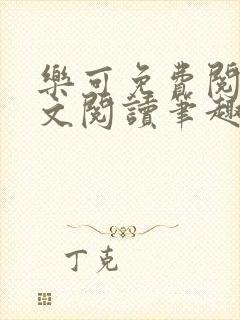 樂可免費閱
文閱讀筆趣
丁克